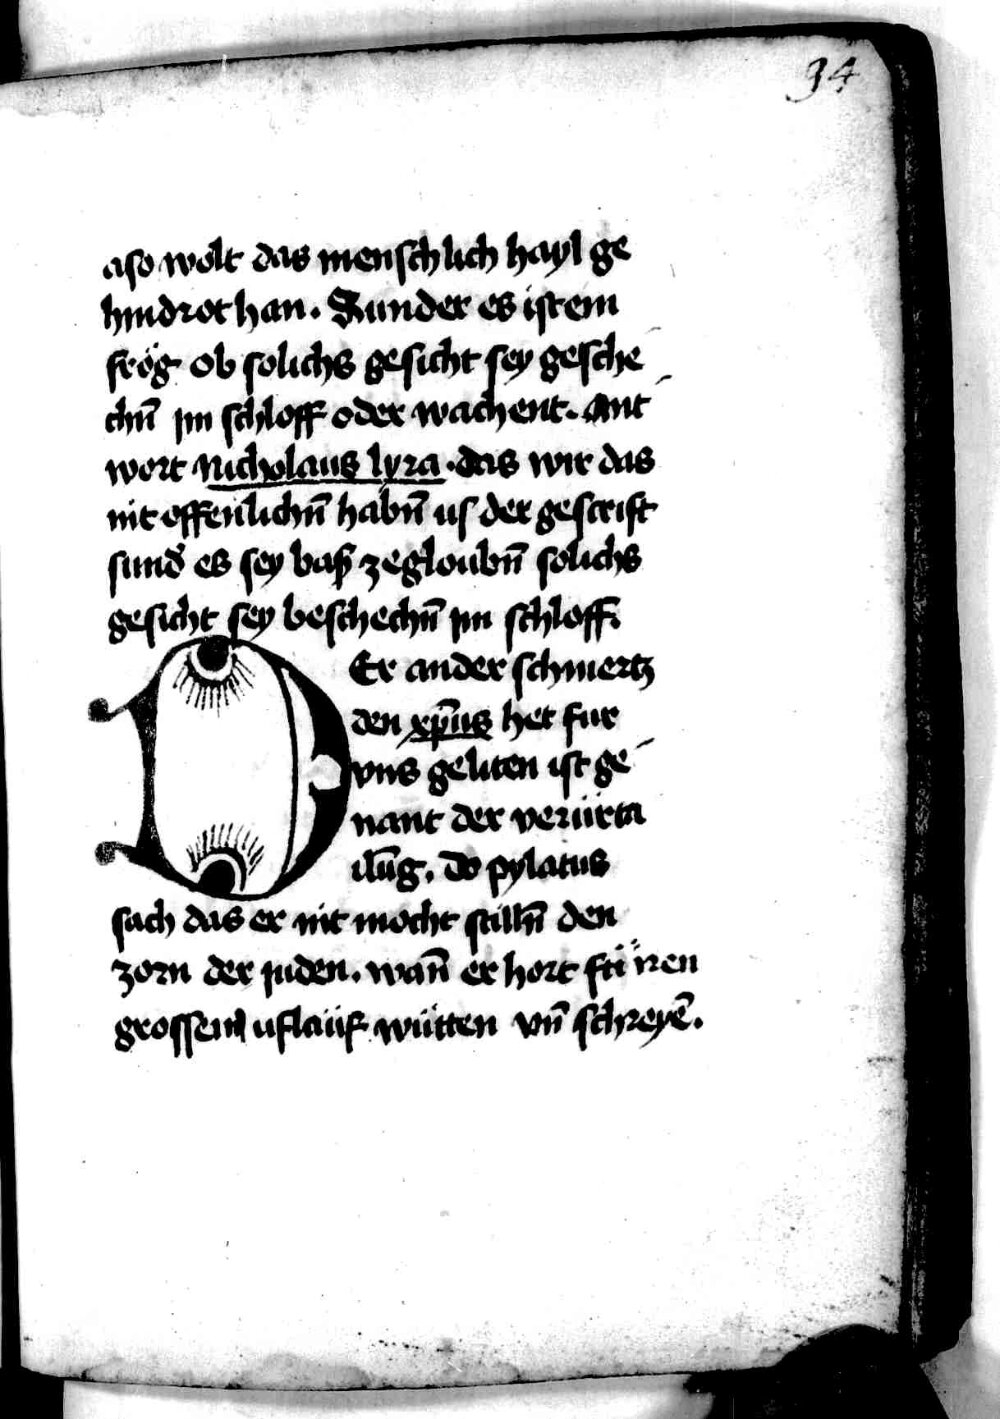 34
aso wolt das menschlich hayl ge
hindrot han. Sunder es ist ein
frög ob solichs gesicht sey gesche
chn̄ im schloff oder wachent. Ant
wort nicholaus lyra. das wir das
nit offenlichn̄ habn̄ us der gescrift
sund' es sey baß ze gloubn̄ solichs
gesicht sey beschechn̄ im schloff.
DEr ander schmertz
den xp̄us het fur
vns geliten ist ge
nant der verürta
ilūg. do pylatus
sach das er nit mocht stilln̄ den
zorn der juden. wan̄ er hort
grossem uflaüf wütten vn̄ schreyē.